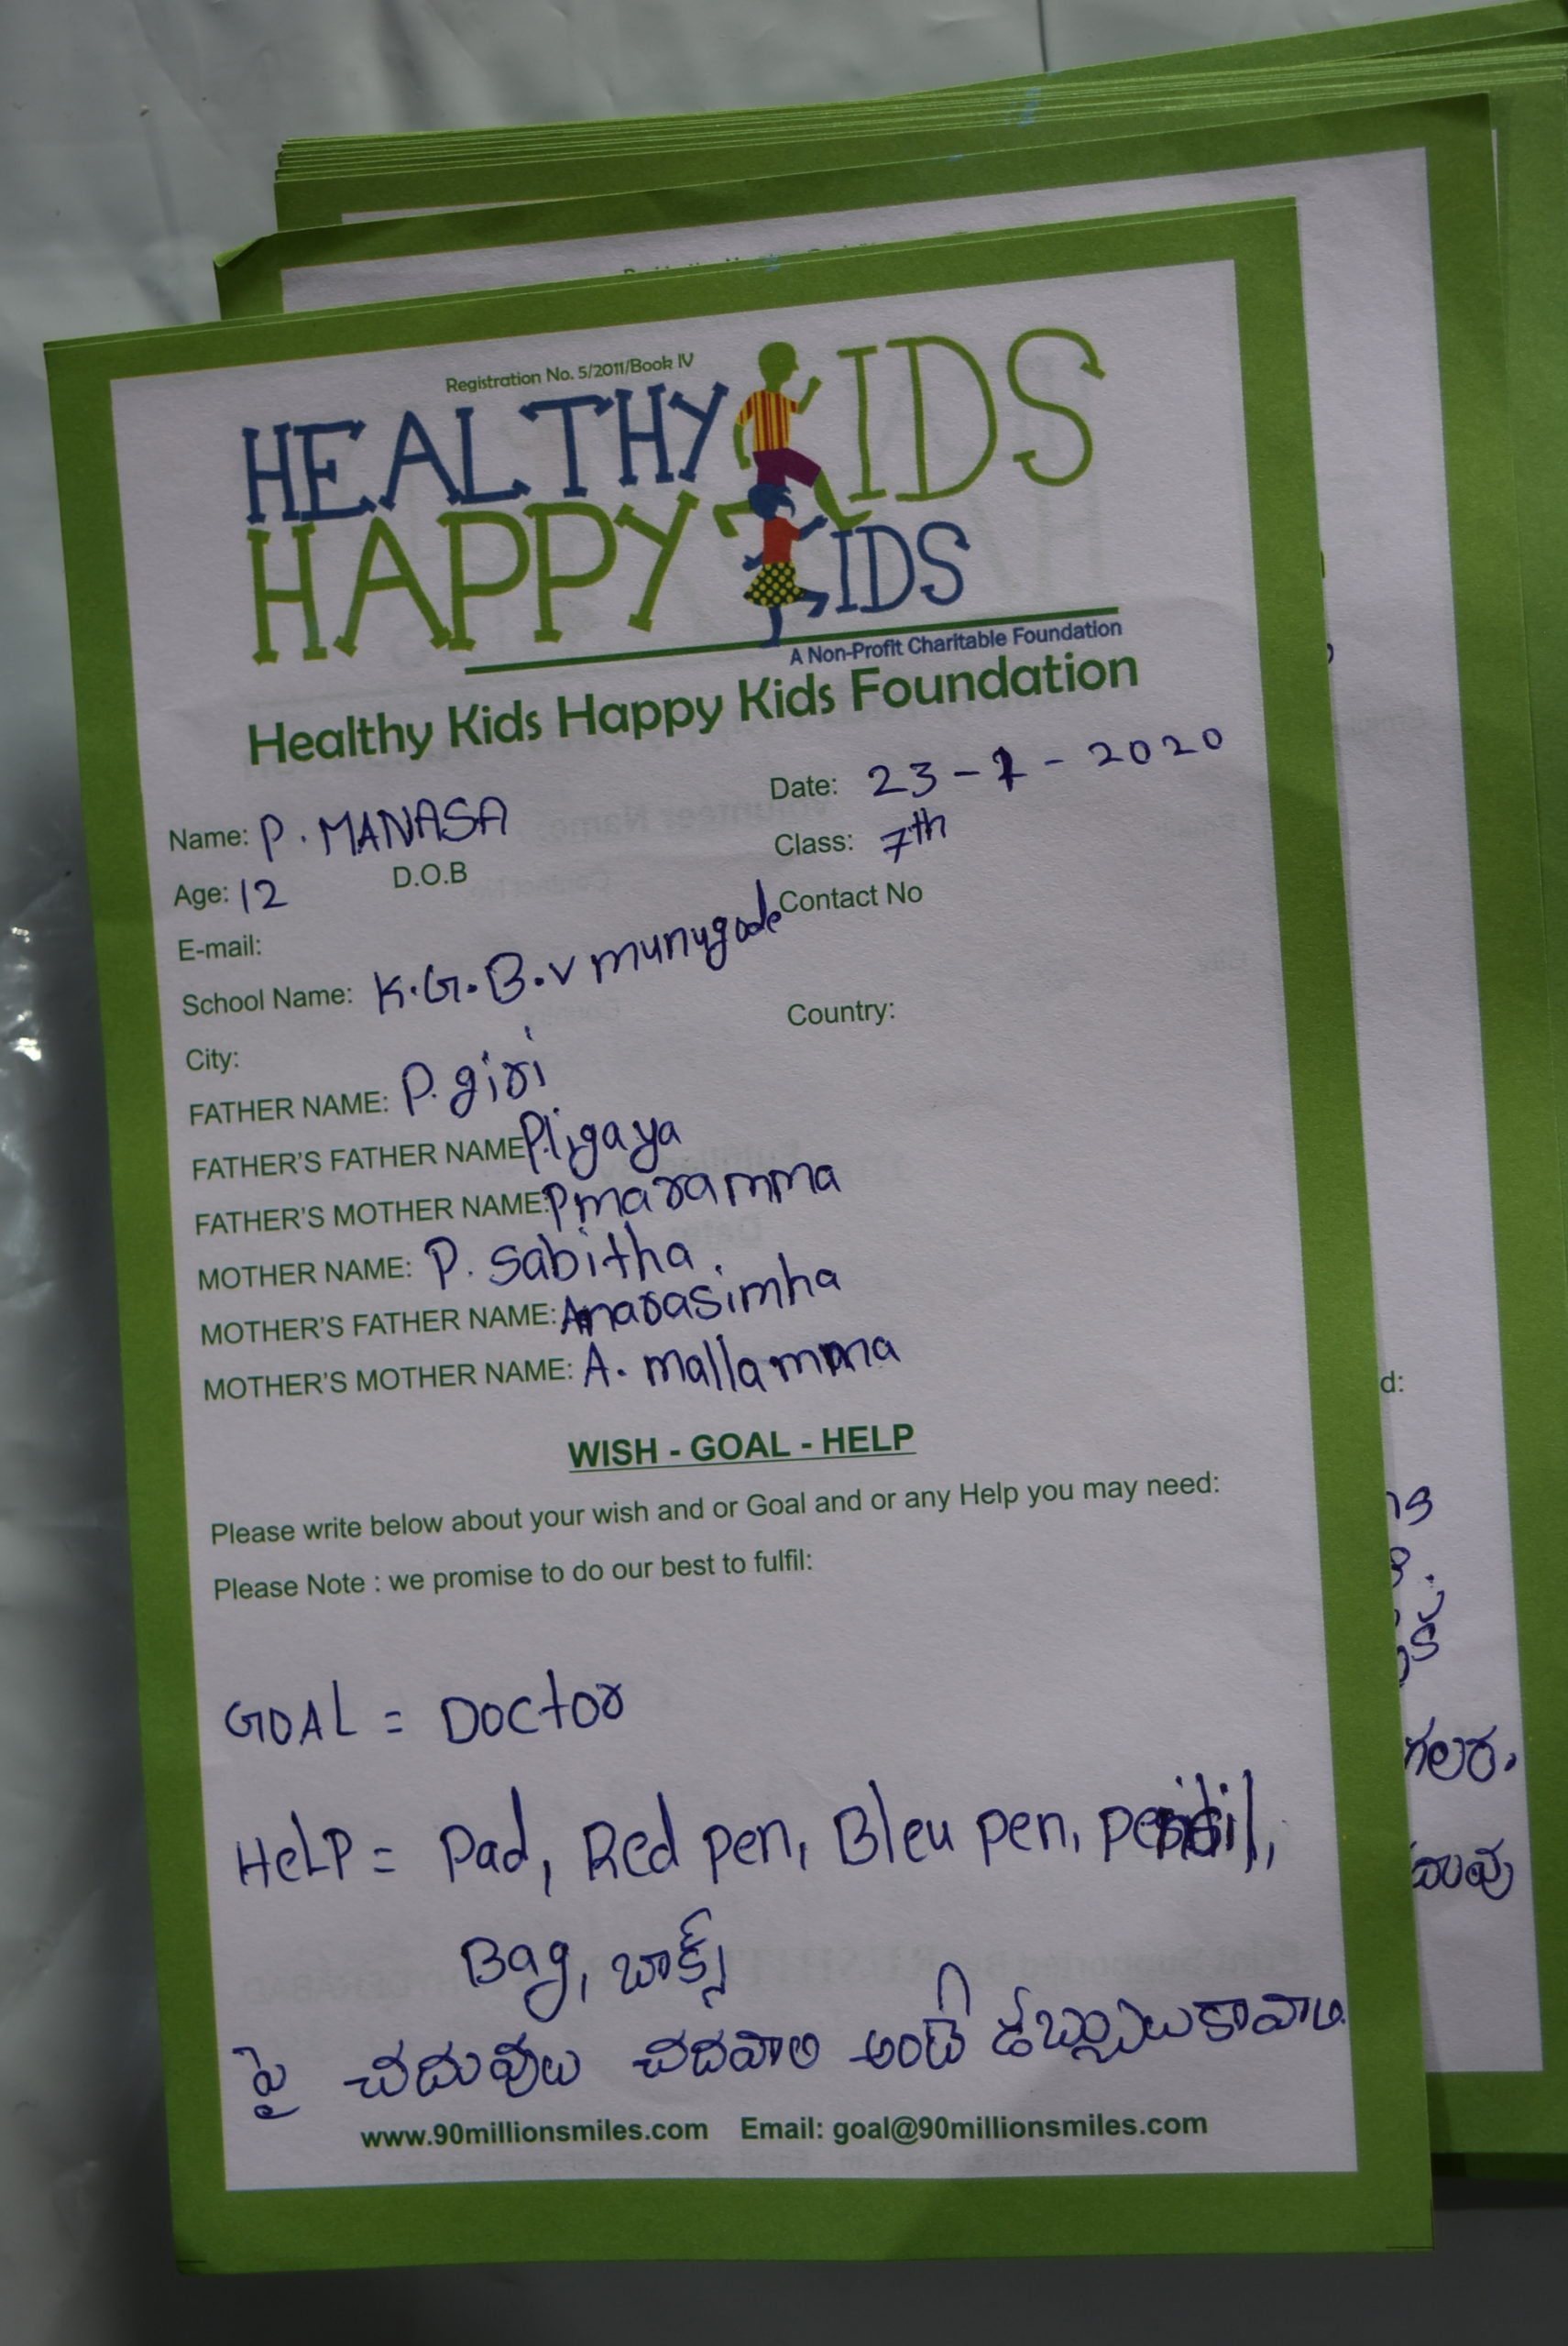 Registration No. 5/2011/Book IV
HEALTHY KIDS
HAPPY KIDS
A Non-Profit Charitable Foundation
Healthy Kids Happy Kids Foundation
Date: 23-1-2020
Name: P. MANASA
Class: 7th
Age: 12 D.O.B
Contact No
E-mail:
School Name: K.G.B.V munugode
City: Country:
FATHER NAME: P. giri
FATHER'S FATHER NAME P.ligaya
FATHER'S MOTHER NAME: P maramma
MOTHER NAME: P. Sabitha.
MOTHER'S FATHER NAME: A narasimha
MOTHER'S MOTHER NAME: A. mallamma
WISH - GOAL - HELP
Please write below about your wish and or Goal and or any Help you may need:
Please Note : we promise to do our best to fulfil:
GOAL = Doctor
HeLP = Pad, Red pen, Bleu pen, pencil,
Bag, బాక్స్
పై చదువులు చదవాలి అంటే డబ్బులు కావాలి.
www.90millionsmiles.com Email: goal@90millionsmiles.com
d:
గలరు.